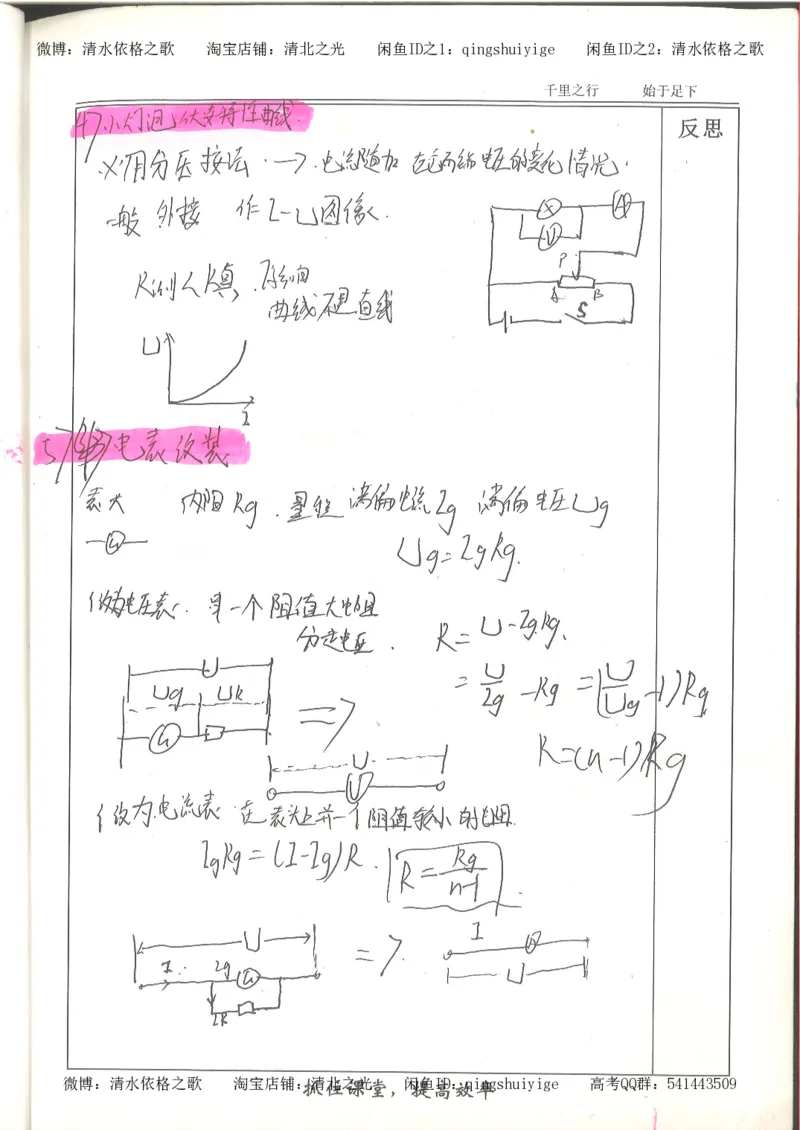 微博：清水依格之歌 淘宝店铺：清北之光 闲鱼ID之1：qingshuiyige 闲鱼ID之2：清水依格之歌
千里之行 始于足下
反思
4) 小灯泡伏安特性曲线.
必用分压接法. → 电流随加在两端电压的变化情况.
一般 外接 作I-U图像.
V
A
P
A B
S
R测<R真. 不影响
曲线不是直线
U
I
5) 电表改装
表头 内阻Rg. 量程 满偏电流Ig 满偏电压Ug
G
Ug=IgRg.
改为电压表. 串一个阻值大电阻
分走电压.
R= U-IgRg.
= U/Ig -Rg = (U/Ug -1)Rg
R=(n-1)Rg
U
Ug UR
G
⇒
U
V
改为电流表. 在表头上并一个阻值较小的电阻.
IgRg=(I-Ig)R. R= Rg/n-1
U
I Ig G
IR
⇒
I A
U
抓住课堂，提高效率
微博：清水依格之歌 淘宝店铺：清北之光 闲鱼ID：qingshuiyige 高考QQ群：541443509